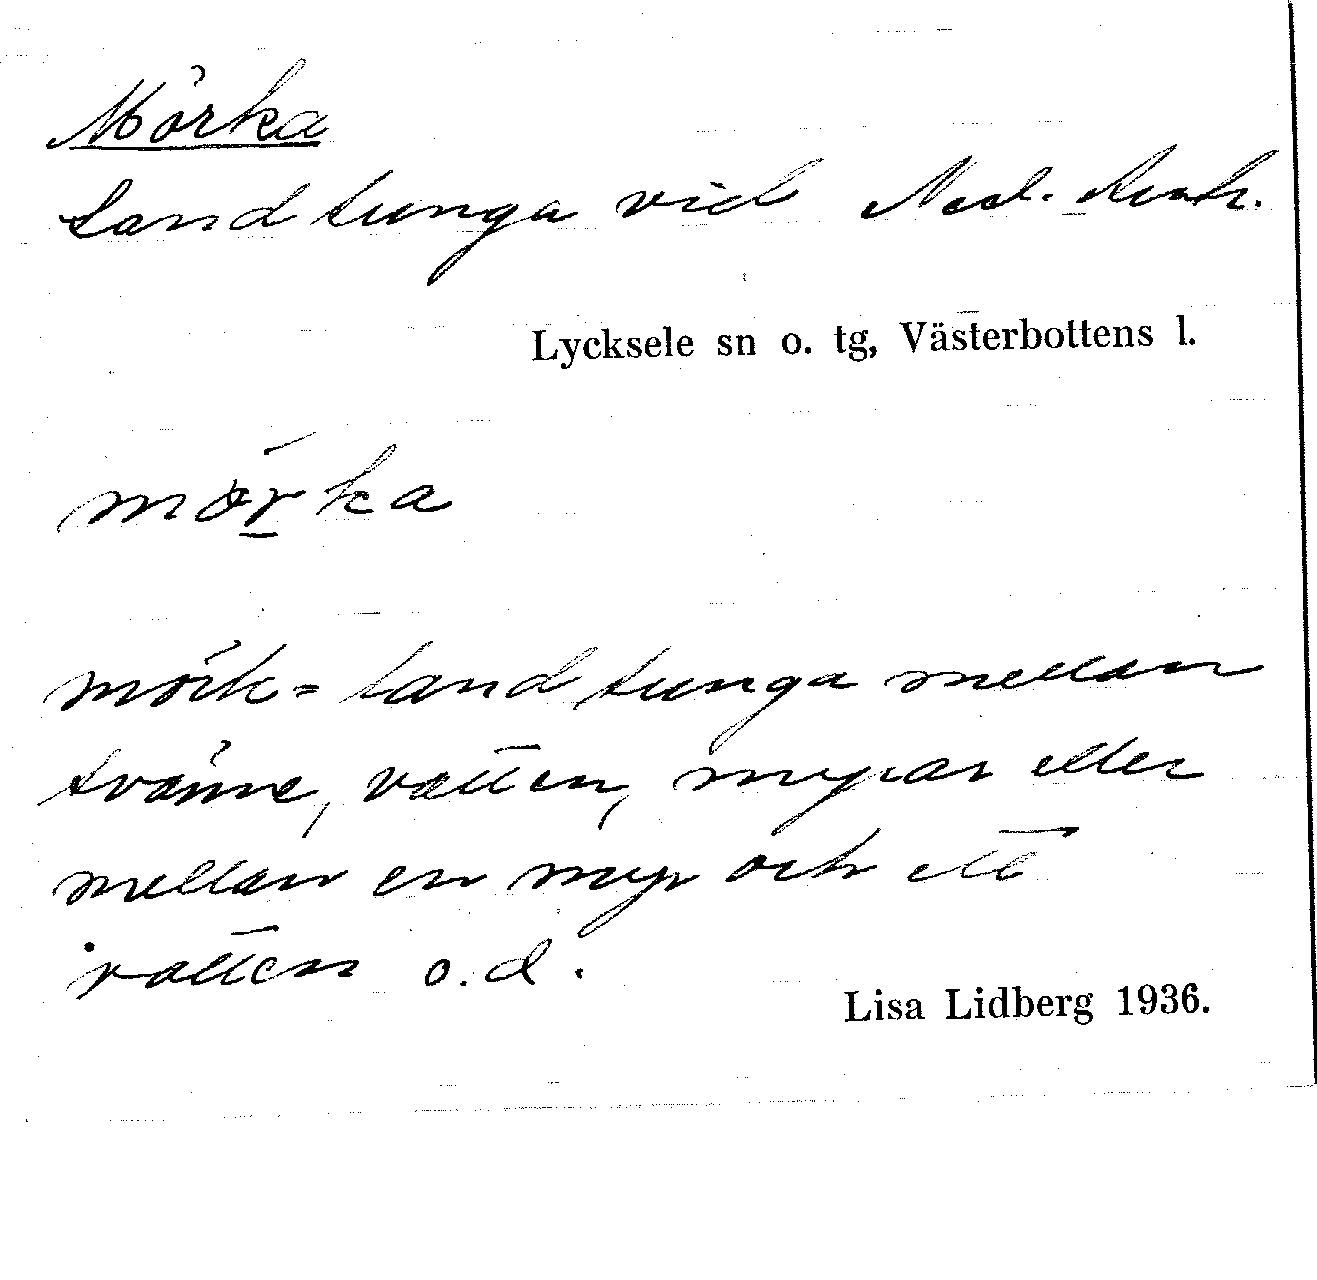 Mörka
Landtunga vid Ned.
Lycksele sn o. tg, Västerbottens l.
mörka
mörk = landtunga mellan
tvänne, vatten, myrar eller
mellan en myr och ett
vatten o.d.
Lisa Lidberg 1936.